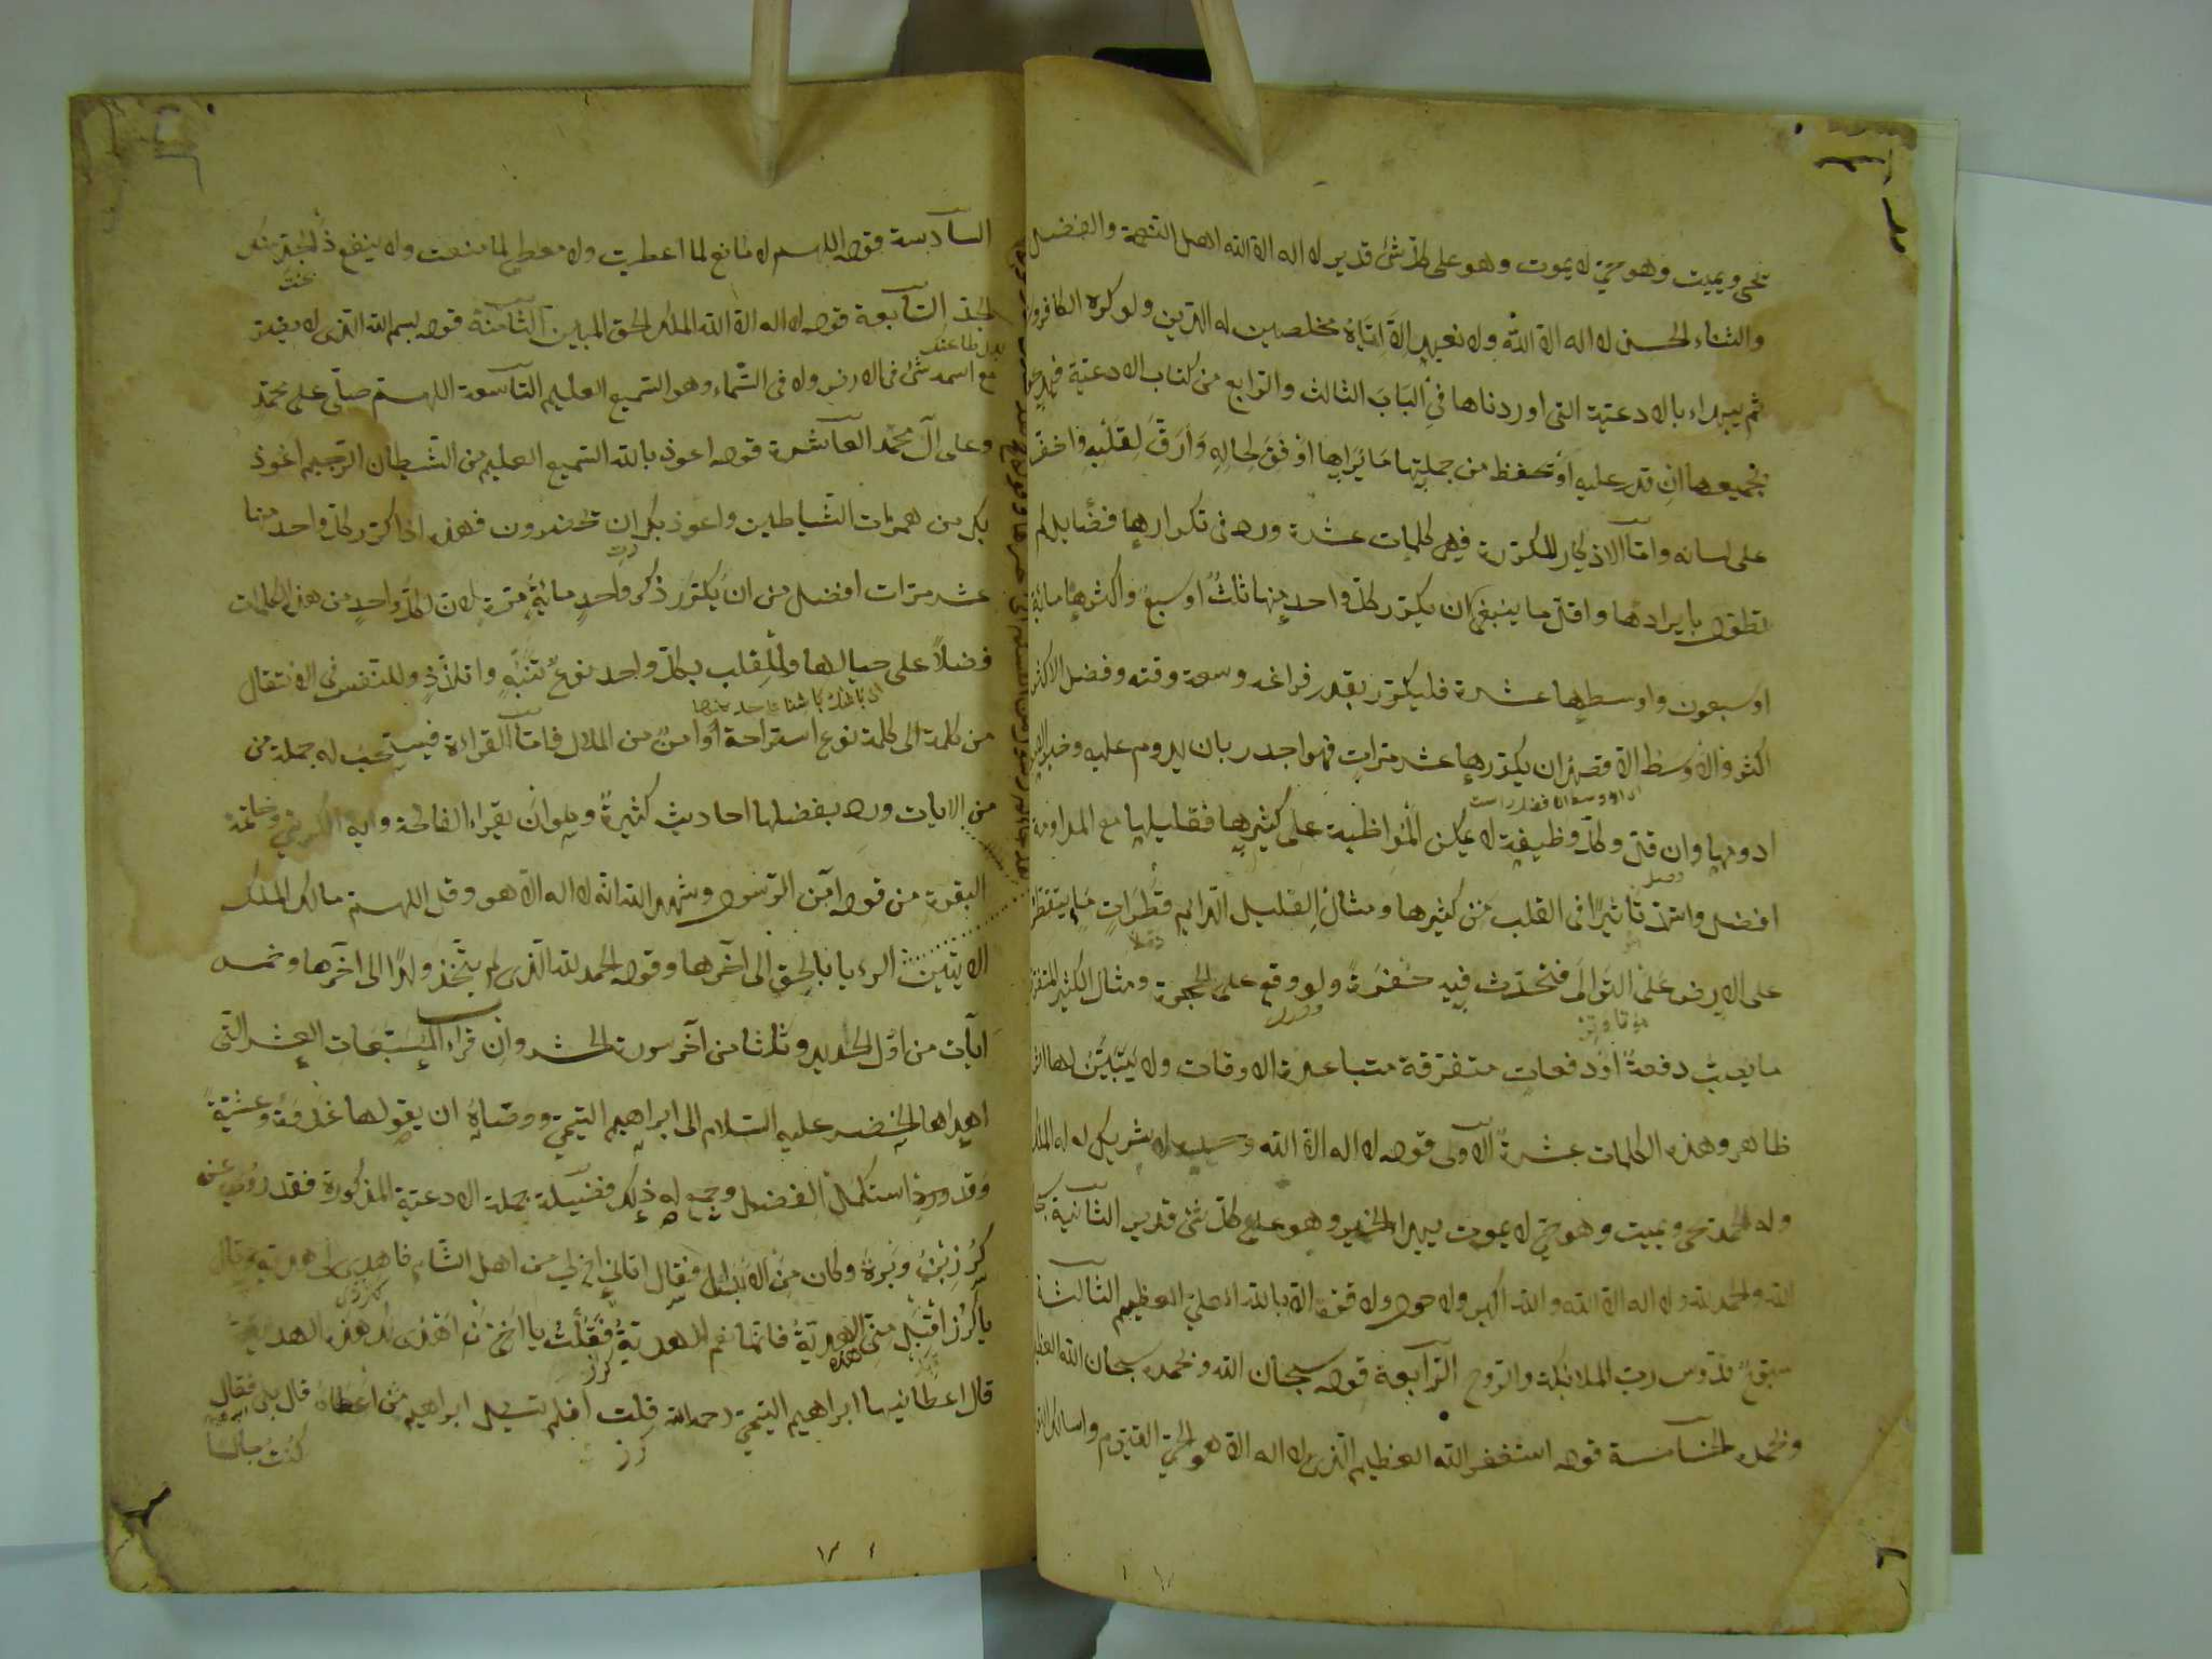 يحى ويميت وهو حيّ لا يموت وهو على كلّ شئ قدير لا اله الا الله اهل النّعمة والفضل
والثناء الحسن لا اله الا الله ولا نعبد الا ايّاه مخلصين له الدّين ولو كره الكافرون
ثم يبداء بالادعيّة التى اوردناها فى الباب الثالث والرابع من كتاب الادعيّة فيدعو
بجميعها ان قدر عليه او يحفظ من جملتها ما يراها اوفق لحاله وارقّ لقلبه واخفّ
على لسانه وامّا الاذكار المكرّرة فهى كلمات عشرة ورد فى تكرارها فضايل لم
نطوّل بايرادها واقلّ ما ينبغى ان يكرّر كلّ واحد منها ثلث او سبع واكثرها مائة
او سبعون واوسطها عشرة فليكرّر بقدر فراغه وسعة وقته وفضل الاكثر
اكثر والاوسط الاقصد ان يكرّرها عشر مرّات فهو اجدر بان يدوم عليه وخير الامور
ادومها وان قلّ وكلّ وظيفة لا يمكن المواظبة على كثيرها فقليلها مع المداومة
افضل واشدّ تاثيرًا فى القلب من كثيرها ومثال القليل الدايم قطرات ما يتقطر
على الارض على التوالى فتحدث فيه حفرة ولو وقع على الحجرة ومثال الكثير المتفرق
ما يصبّ دفعةً او دفعات متفرّقة متباعدة الاوقات ولا يتبيّن لها اثر
ظاهر وهذه الكلمات عشرة الاولى قوله لا اله الا الله وحده لا شريك له له الملك
وله الحمد يحى ويميت وهو حيّ لا يموت بيده الخير وهو على كلّ شئ قدير الثانية سبحان
الله والحمد لله ولا اله الا الله والله اكبر ولا حول ولا قوة الا بالله العليّ العظيم الثالثة
سبوحٌ قدّوس ربّ الملائكة والرّوح الرّابعة قوله سبحان الله وبحمده سبحان الله العظيم
وبحمده الخامسة قوله استغفر الله العظيم الّذى لا اله الا هو الحيّ القيّوم واساله التوبة
السادسة قوله اللهم لا مانع لما اعطيت ولا معطى لما منعت ولا ينفع ذا الجدّ منك
الجدّ السّابعة قوله لا اله الا الله الملك الحق المبين الثامنة قوله بسم الله الّذى لا يضرّ
مع اسمه شئ فى الارض ولا فى السّماء وهو السّميع العليم التاسعة اللهم صلّى على محمّد
وعلى آل محمّد العاشرة قوله اعوذ بالله السّميع العليم من الشّيطان الرّجيم اعوذ
بك من همزات الشّياطين واعوذ بك ان يحضرون فهذه اذا كرّر كلّ واحد منها
عشر مرّات افضل من ان يكرّر ذكر واحد مائة مرّة لان لكلّ واحد من هذه الكلمات
فضلًا على حيالها وللقلب بكلّ واحد نوع تنبّه واتلذّذ وللنّفس فى الانتقال
من كلمة الى كلمة نوع استراحة وامن من الملال فامّا القراءة فيستحبّ له جملة من
من الايات ورد بفضلها احاديث كثيرة وهو ان يقراء الفاتحة واية الكرسى وخاتمة
البقرة من قوله آمن الرّسول وشهد الله انه لا اله الا هو وقل اللهم مالك الملك
الايتين الرءيا بالحق الى آخرها وقوله الحمد لله الّذى لم يتّخذ ولدًا الى آخرها وخمس
آيات من اوّل الحديد وثلثا من آخر سورة الحشر وان قراء المسبّعات العشر الّتى
اهداها الخضر عليه السّلام الى ابراهيم التيمىّ ووصّاه ان يقولها غدوة وعشيّة
وقد ورد استكمل الفضل وجمع له ذلك فضيلة جملة الادعيّة المذكورة فقد روى عن
كرز بن وبرة وكان من الابدال فقال اتانى اخ لى من اهل الشّام فاهدى الى هديّة وقال
يا كرز اقبل منّى هذه الهديّة فانّها نعم الهديّة فقلت يا اخى من اهدى لك هذه الهديّة
قال اعطانيها ابراهيم التيمىّ رحمه الله قلت افلم تسئل ابراهيم من اعطاه قال بلى فقال
كنت جالسا